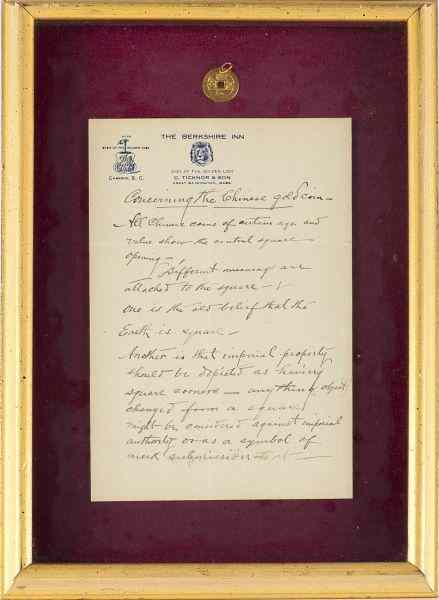 THE BERKSHIRE INN
CAMDEN, S. C.
SIGN OF THE GOLDEN LION
C. TICKNOR & SON
GREAT BARRINGTON, MASS.
Concerning the Chinese gold coin —
All Chinese coins of certain age and
value show the central square
opening —
Different meanings are
attached to the square —
One is the old belief that the
Earth is square —
Another is that imperial property
should be depicted as having
square corners — anything object
changed from a square
might be considered against imperial
authority or as a symbol of